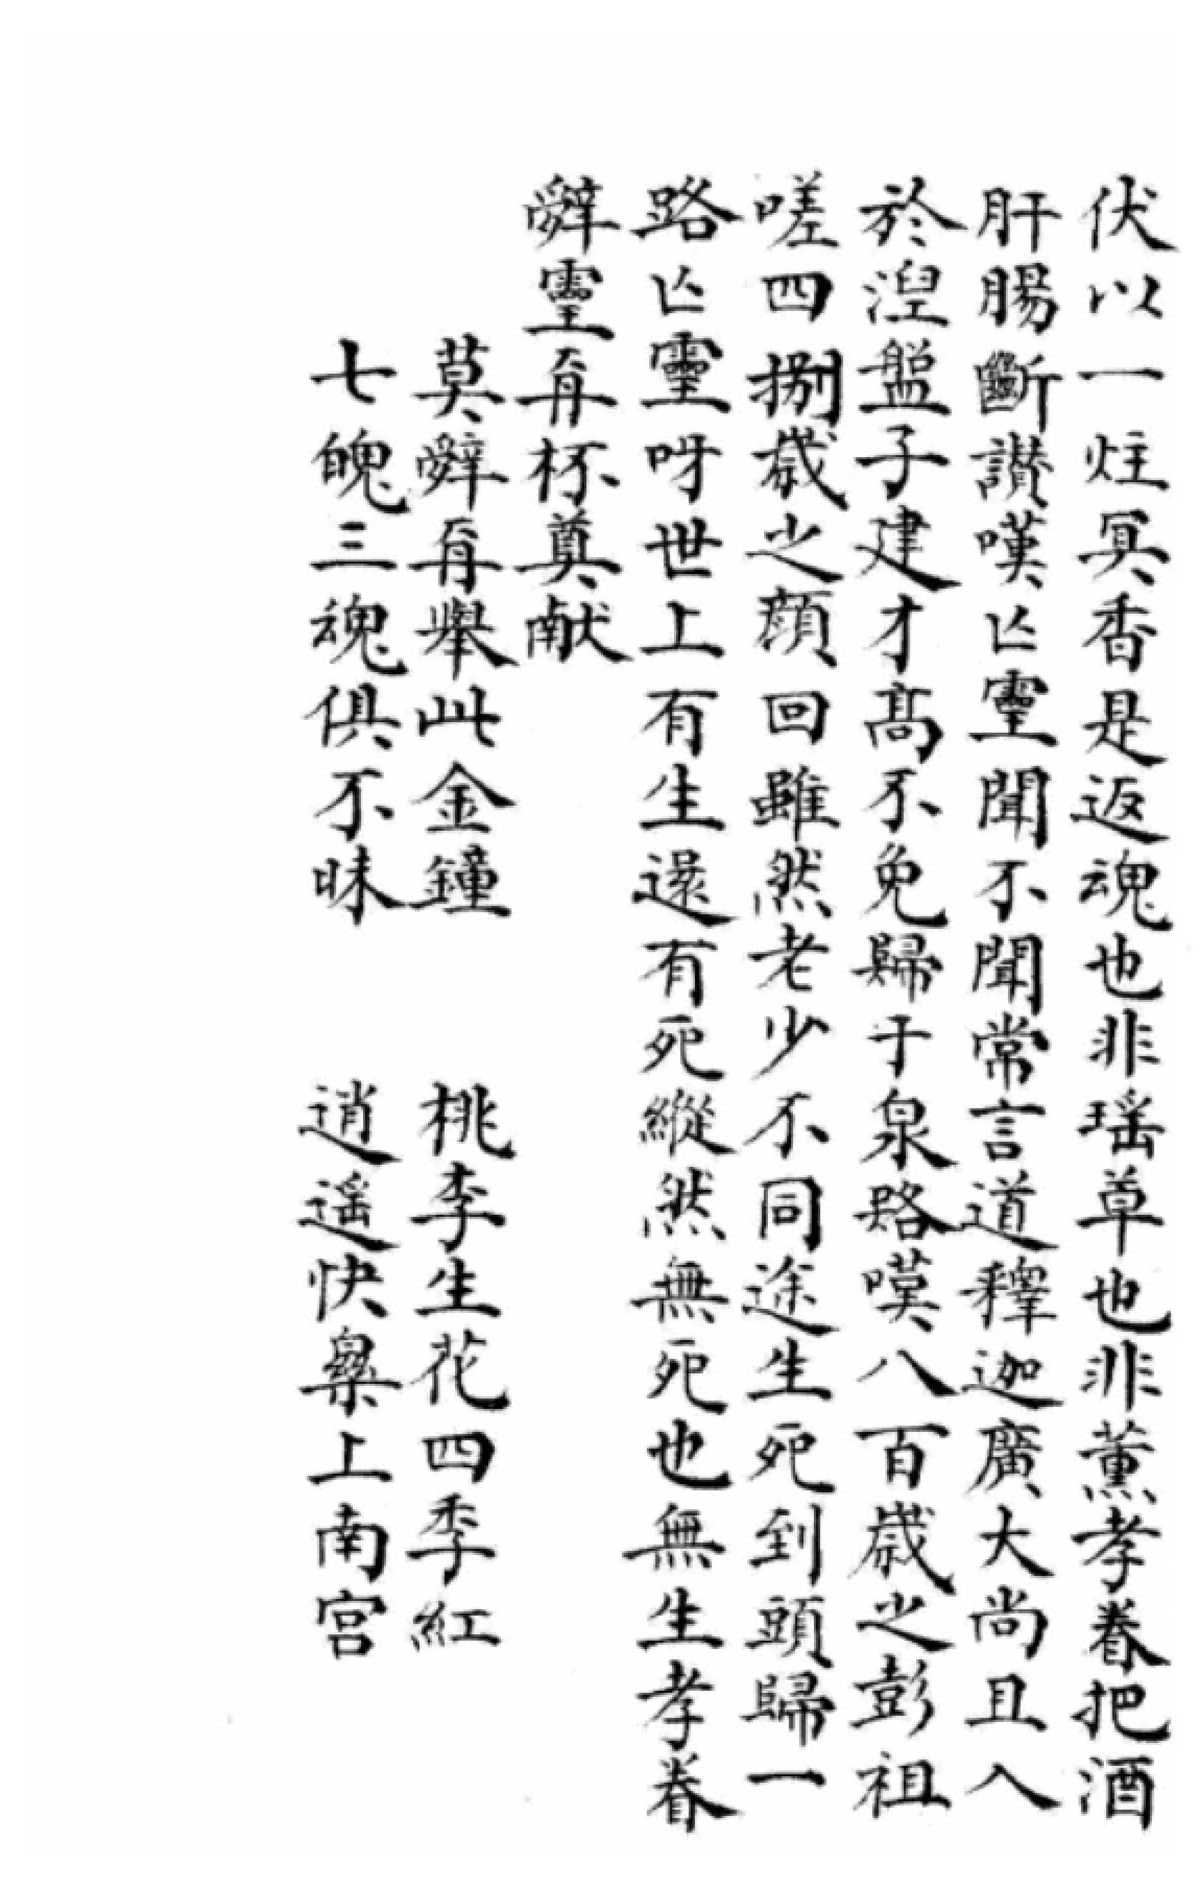 伏以一炷冥香是返魂也非瑶草也非薰孝眷把酒
肝腸斷讃嘆亾靈聞不聞常言道釋迦廣大尚且入
於涅盤子建才高不免歸于泉路嘆八百歳之彭祖
嗟四捌歳之顔回雖然老少不同途生死到頭歸一
路亾靈呀世上有生還有死縱然無死也無生孝眷
辭靈再杯奠献
莫辭再舉此金鐘 桃李生花四季紅
七魄三魂俱不昧 逍遥快樂上南宮